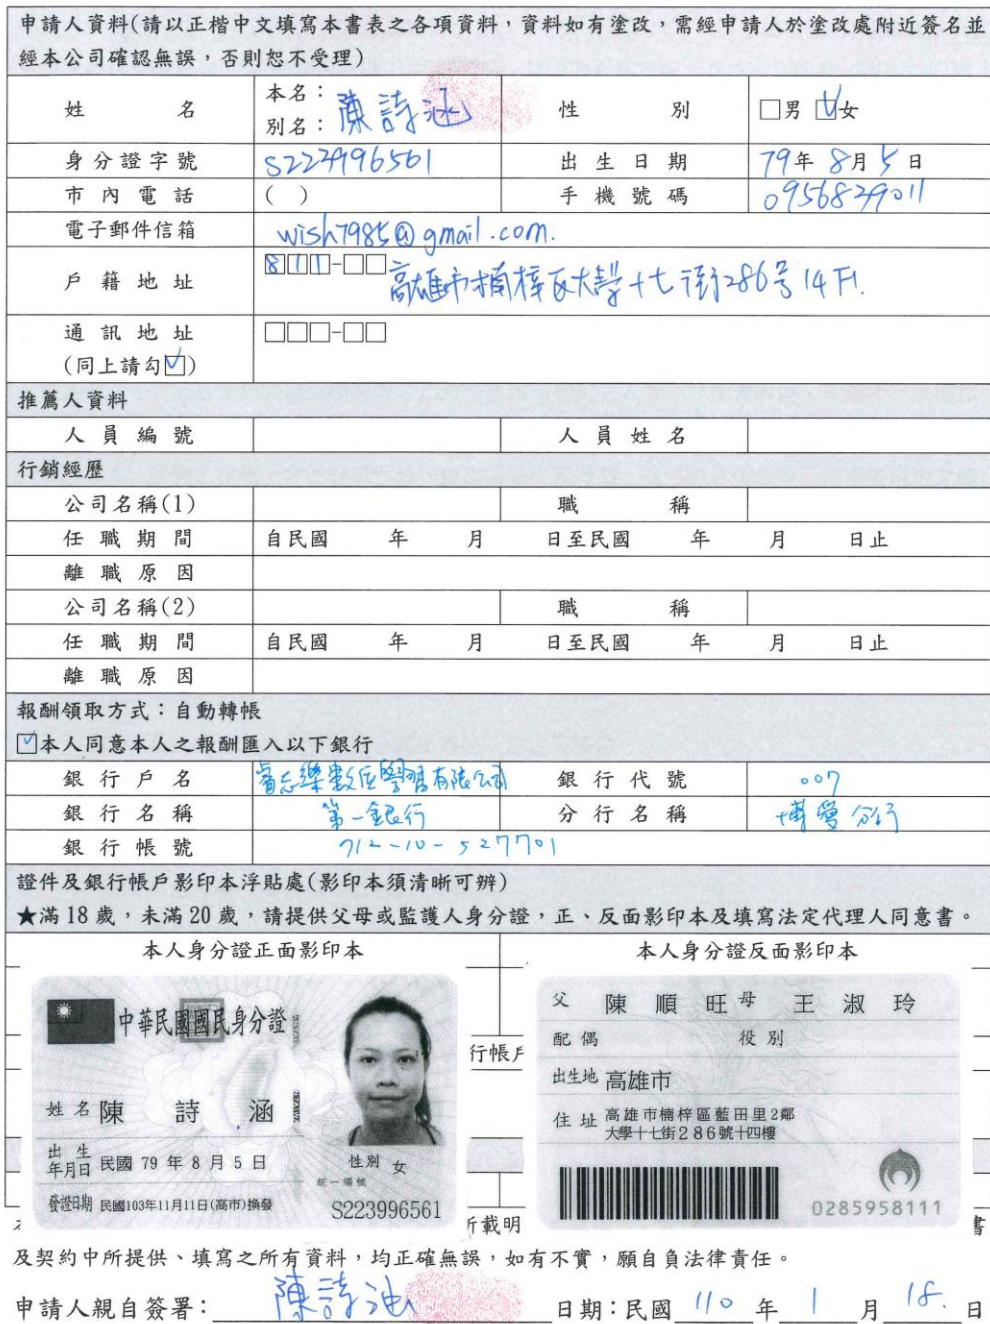 申請人資料(請以正楷中文填寫本書表之各項資料，資料如有塗改，需經申請人於塗改處附近簽名並
經本公司確認無誤，否則恕不受理)
姓 名 本名： 別名： 陳詩涵 性 別 □男 ☑女
身分證字號 S223996561 出生日期 79年 8月 5日
市內電話 ( ) 手機號碼 0956839011
電子郵件信箱 wish7985@gmail.com.
戶籍地址 811-□□ 高雄市楠梓區大學十七街286号14F1.
通訊地址 □□□-□□
(同上請勾☑)
推薦人資料
人員編號 人員姓名
行銷經歷
公司名稱(1) 職 稱
任職期間 自民國 年 月 日至民國 年 月 日止
離職原因
公司名稱(2) 職 稱
任職期間 自民國 年 月 日至民國 年 月 日止
離職原因
報酬領取方式：自動轉帳
☑本人同意本人之報酬匯入以下銀行
銀行戶名 睿志樂數位學習有限公司 銀行代號 007
銀行名稱 第一銀行 分行名稱 博愛分行
銀行帳號 712-10-527701
證件及銀行帳戶影印本浮貼處(影印本須清晰可辨)
★滿18歲，未滿20歲，請提供父母或監護人身分證，正、反面影印本及填寫法定代理人同意書。
本人身分證正面影印本 本人身分證反面影印本
中華民國國民身分證
姓名 陳 詩 涵
出生年月日 民國 79 年 8 月 5 日 性別 女
統一編號
發證日期 民國103年11月11日(高市)換發 S223996561
行帳戶
父 陳順旺 母 王淑玲
配偶 役別
出生地 高雄市
住址 高雄市楠梓區藍田里2鄰
大學十七街286號十四樓
0285958111
所載明
書
及契約中所提供、填寫之所有資料，均正確無誤，如有不實，願自負法律責任。
申請人親自簽署：陳詩涵 日期：民國 110 年 1 月 18. 日